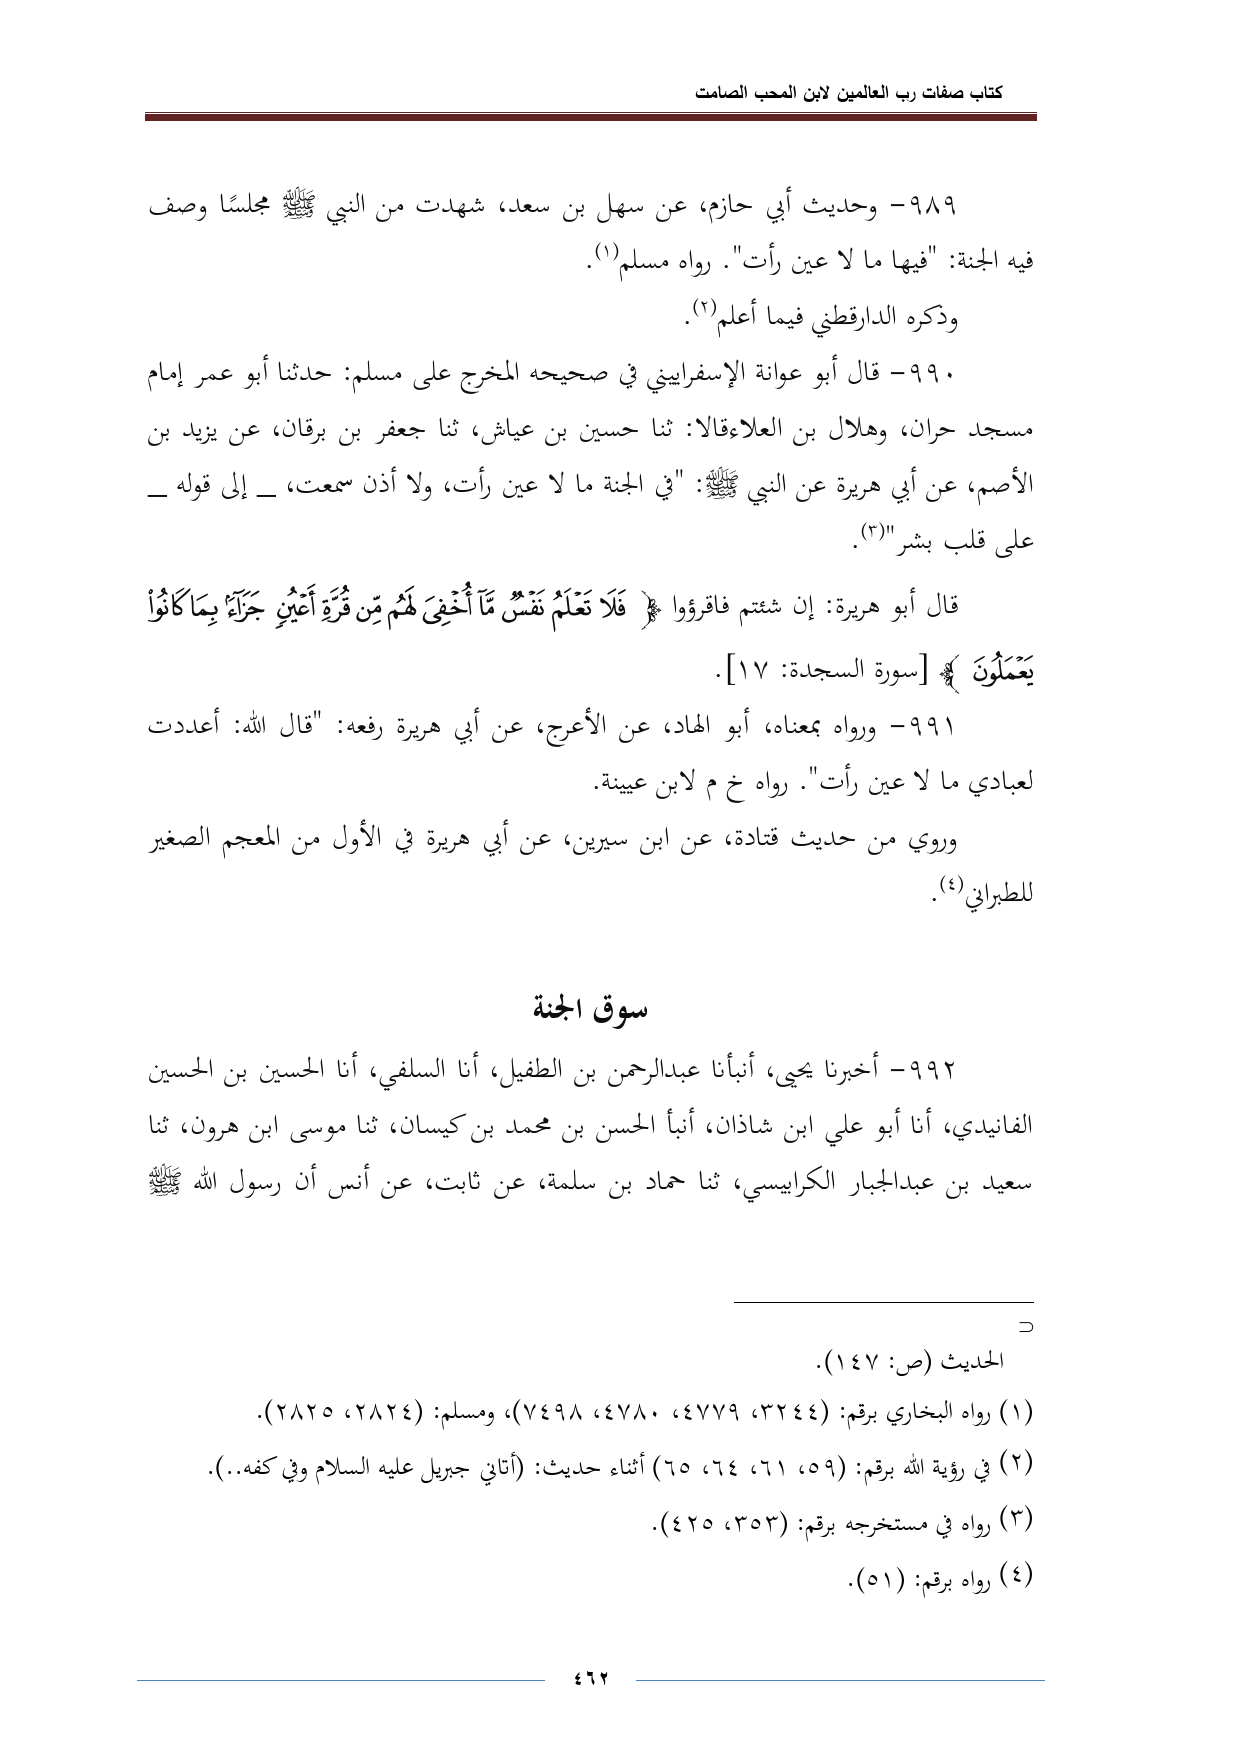 كتاب صفات رب العالمين لابن المحب الصامت
٩٨٩- وحديث أبي حازم، عن سهل بن سعد، شهدت من النبي ﷺ مجلسًا وصف
فيه الجنة: "فيها ما لا عين رأت". رواه مسلم(١).
وذكره الدارقطني فيما أعلم(٢).
٩٩٠- قال أبو عوانة الإسفراييني في صحيحه المخرج على مسلم: حدثنا أبو عمر إمام
مسجد حران، وهلال بن العلاءقالا: ثنا حسين بن عياش، ثنا جعفر بن برقان، عن يزيد بن
الأصم، عن أبي هريرة عن النبي ﷺ: "في الجنة ما لا عين رأت، ولا أذن سمعت، _ إلى قوله _
على قلب بشر"(٣).
قال أبو هريرة: إن شئتم فاقرؤوا ﴿ فَلَا تَعْلَمُ نَفْسٌ مَّآ أُخْفِيَ لَهُم مِّن قُرَّةِ أَعْيُنٍ جَزَآءًۢ بِمَا كَانُوا۟
يَعْمَلُونَ ﴾ [سورة السجدة: ١٧].
٩٩١- ورواه بمعناه، أبو الهاد، عن الأعرج، عن أبي هريرة رفعه: "قال الله: أعددت
لعبادي ما لا عين رأت". رواه خ م لابن عيينة.
وروي من حديث قتادة، عن ابن سيرين، عن أبي هريرة في الأول من المعجم الصغير
للطبراني(٤).
سوق الجنة
٩٩٢- أخبرنا يحيى، أنبأنا عبدالرحمن بن الطفيل، أنا السلفي، أنا الحسين بن الحسين
الفانيدي، أنا أبو علي ابن شاذان، أنبأ الحسن بن محمد بن كيسان، ثنا موسى ابن هرون، ثنا
سعيد بن عبدالجبار الكرابيسي، ثنا حماد بن سلمة، عن ثابت، عن أنس أن رسول الله ﷺ
⊃
الحديث (ص: ١٤٧).
(١) رواه البخاري برقم: (٣٢٤٤، ٤٧٧٩، ٤٧٨٠، ٧٤٩٨)، ومسلم: (٢٨٢٤، ٢٨٢٥).
(٢) في رؤية الله برقم: (٥٩، ٦١، ٦٤، ٦٥) أثناء حديث: (أتاني جبريل عليه السلام وفي كفه..).
(٣) رواه في مستخرجه برقم: (٣٥٣، ٤٢٥).
(٤) رواه برقم: (٥١).
٤٦٢